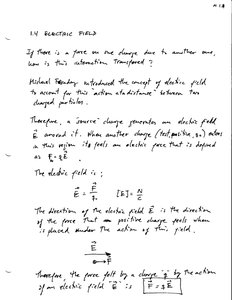 1.4 ELECTRIC FIELD
If there is a force on one charge due to another one,
how is this information Transferred?
Michael Faraday introduced the concept of electric field
to account for this "action at a distance" between two
charged particles.
Therefore, a "source" charge generates an electric field
E⃗ around it. When another charge (test, positive, q₀) enters
in this region its feels an electric force that is defined
as F⃗ = q E⃗.
The electric field is:
E⃗ = F⃗/q₀ [E] = N/C
The direction of the electric field E⃗ is the direction
of the force that a positive charge feels when
is placed under the action of this field.
E⃗
F⃗
Therefore, the force felt by a charge "q" by the action
of an electric field "E⃗" is F⃗ = q E⃗